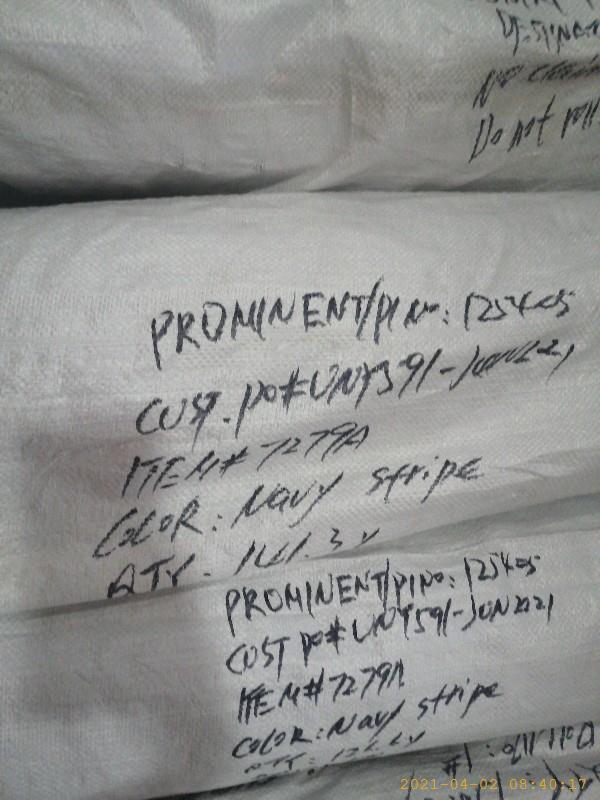 Do not roll
PROMINENT/PI No: 125405
CUST. PO# UNY591-JUN2221
ITEM# 7279A
COLOR: Navy stripe
QTY. 161.3 Y
PROMINENT/PI No: 125405
CUST PO# UNY591-JUN2221
ITEM# 7279A
COLOR: Navy stripe
2021-04-02 08:40:17